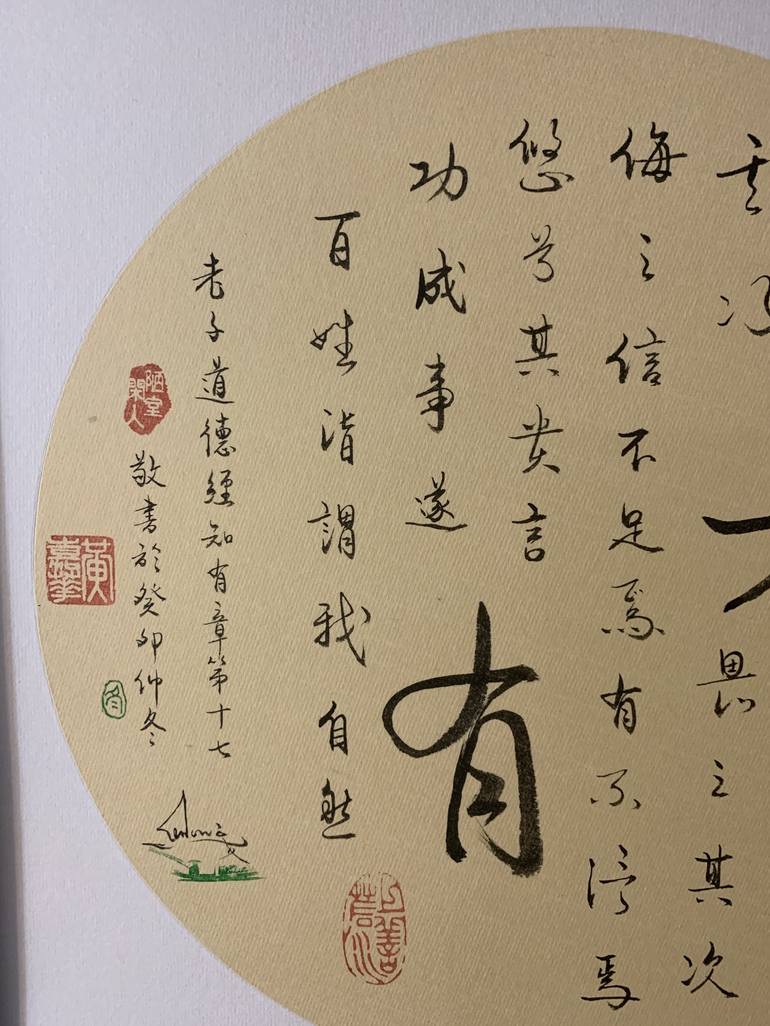 其次
畏之其次
侮之信不足焉有不信焉
悠兮其貴言
功成事遂
有
百姓皆謂我自然
上善若水
老子道德經知有章第十七
敬書於癸卯仲冬
陋室閑人
冬